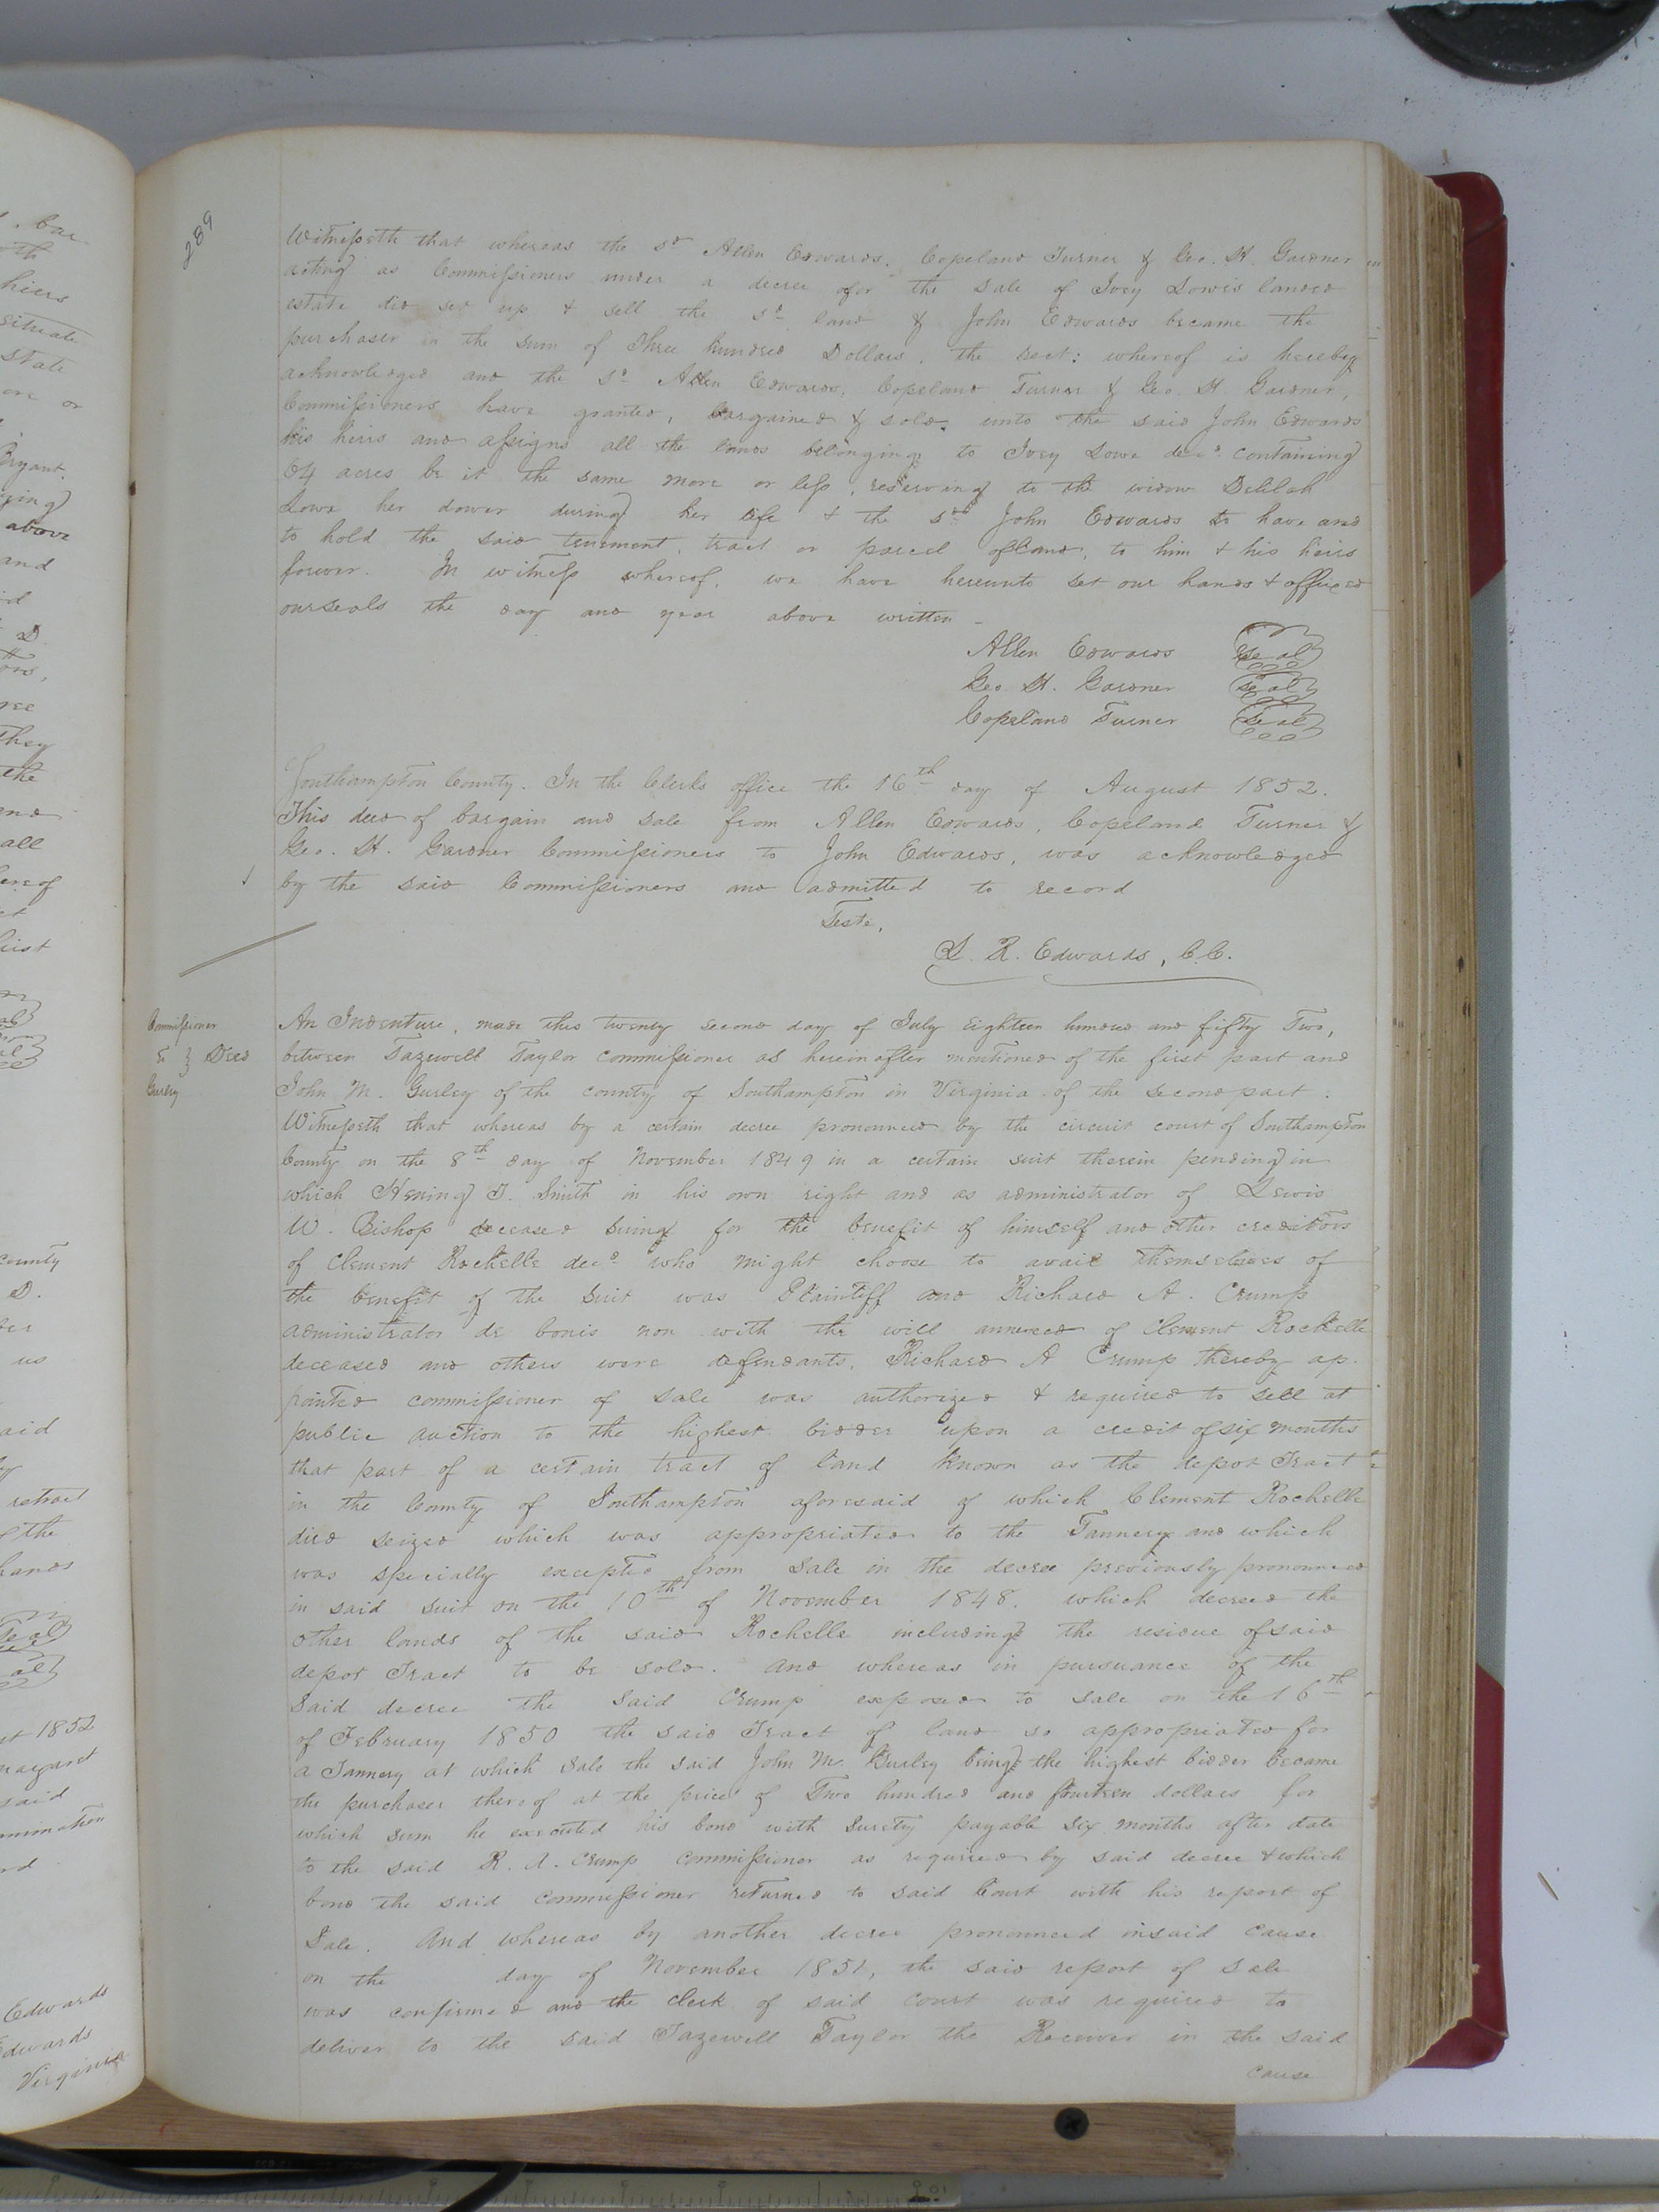 289
Witnesseth that whereas the sd Allen Edwards, Copeland Turner & Geo. H. Gardner
acting as Commissioners under a decree for the sale of Joey Lowes landed
estate did set up & sell the sd land & John Edwards became the
purchaser in the sum of Three hundred Dollars, the rect: whereof is hereby
acknowledged and the sd Allen Edwards, Copeland Turner & Geo. H. Gardner,
Commissioners have granted, bargained & sold, unto the said John Edwards
his heirs and assigns all the lands belonging to Joey Lowe decd containing
64 acres be it the same more or less, reserving to the widow Delilah
Lowe her dower during her life & the sd John Edwards to have and
to hold the said tenement, tract or parcel of land, to him & his heirs
forever. In witness whereof, we have hereunto set our hands & affixed
our seals the day and year above written -
Allen Edwards seal
Geo. H. Gardner seal
Copeland Turner seal
Southampton County. In the Clerks office the 16th day of August 1852.
This deed of bargain and sale from Allen Edwards, Copeland Turner &
Geo. H. Gardner Commissioners to John Edwards, was acknowledged
by the said Commissioners and admitted to record
Teste,
L. R. Edwards, C.C.
Commissioner
to } Deed
Gurley
An Indenture, made this twenty second day of July Eighteen hundred and fifty Two,
between Tazewell Taylor commissioner as herein after mentioned of the first part and
John M. Gurley of the county of Southampton in Virginia of the second part:
Witnesseth that whereas by a certain decree pronounced by the circuit court of Southampton
County on the 8th day of November 1849 in a certain suit therein pending in
which Hening T. Smith in his own right and as administrator of Lewis
W. Bishop deceased suing for the benefit of himself and other creditors
of Clement Rochelle decd who might choose to avail themselves of
the benefit of the suit was Plaintiff and Richard A. Crump
administrator de bonis non with the will annexed of Clement Rochelle
deceased and others were defendants, Richard A Crump thereby ap-
pointed commissioner of sale was authorized & required to sell at
public auction to the highest bidder upon a credit of six months
that part of a certain tract of land known as the depot Tract
in the County of Southampton aforesaid of which Clement Rochelle
died seized which was appropriated to the Tannery and which
was specially excepted from sale in the decree previously pronounced
in said suit on the 10th of November 1848. which decreed the
other lands of the said Rochelle including the residue of said
depot Tract to be sold. And whereas in pursuance of the
said decree the said Crump exposed to sale on the 16th
of February 1850 the said Tract of land so appropriated for
a Tannery at which sale the said John M. Gurley being the highest bidder became
the purchaser thereof at the price of Two hundred and fourteen dollars for
which sum he executed his bond with surety payable six months after date
to the said R. A. Crump commissioner as required by said decree & which
bond the said commissioner returned to said Court with his report of
Sale. And whereas by another decree pronounced in said cause
on the day of November 1851, the said report of sale
was confirmed and the clerk of said court was required to
deliver to the said Tazewell Taylor the Receiver in the said
cause